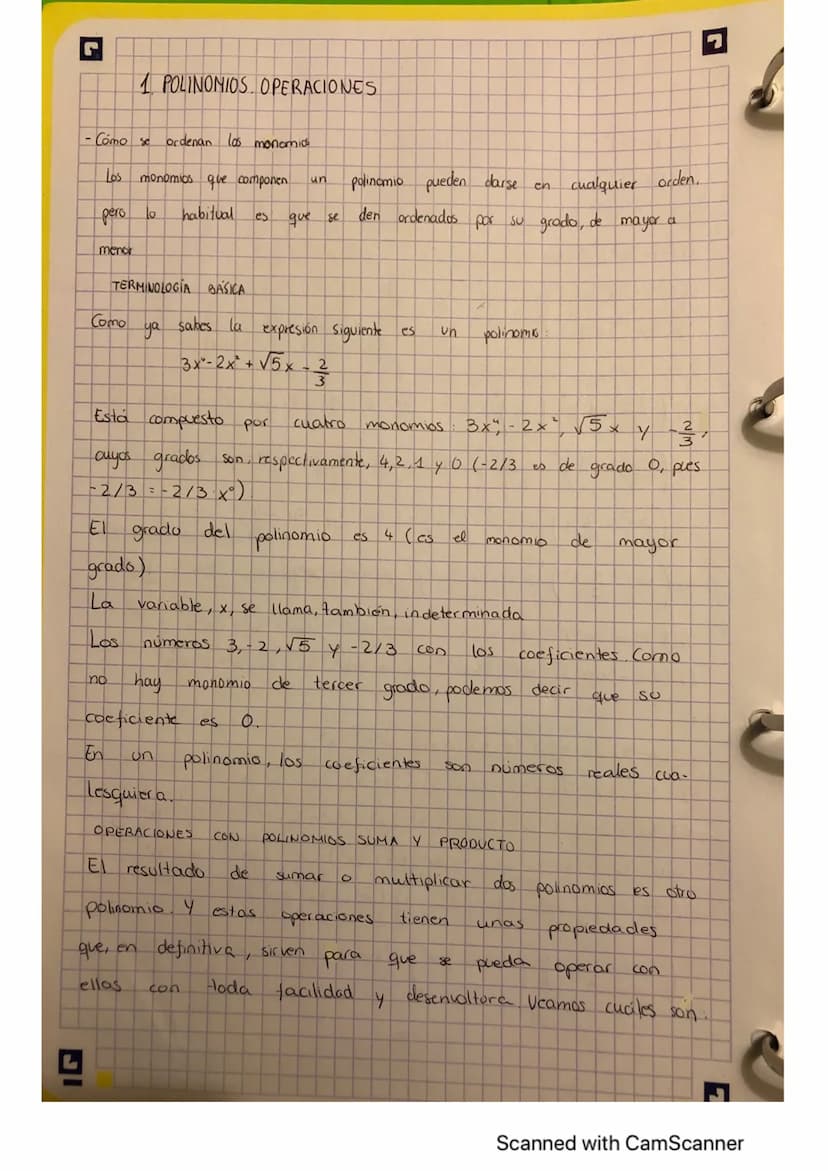 1. POLINOMIOS. OPERACIONES
- Cómo se ordenan los monomios
Los monomios que componen un polinomio pueden darse en cualquier orden.
pero lo habitual es que se den ordenados por su grado, de mayor a
menor
TERMINOLOGÍA BÁSICA
Como ya sabes la expresión siguiente es un polinomio:
3x⁴ - 2x² + √5 x - 2/3
Está compuesto por cuatro monomios: 3x⁴, - 2x², √5 x y - 2/3,
cuyos grados son, respectivamente, 4, 2, 1 y 0 (-2/3 es de grado 0, pues
-2/3 = -2/3·x⁰)
El grado del polinomio es 4 (es el monomio de mayor
grado)
La variable, x, se llama, también, indeterminada
Los números 3, -2, √5 y -2/3 con los coeficientes. Como
no hay monomio de tercer grado, podemos decir que su
coeficiente es 0.
En un polinomio, los coeficientes son números reales cua-
lesquiera.
OPERACIONES CON POLINOMIOS SUMA Y PRODUCTO
El resultado de sumar o multiplicar dos polinomios es otro
polinomio. Y estas operaciones tienen unas propiedades
que, en definitiva, sirven para que se pueda operar con
ellas con toda facilidad y desenvoltura. Veamos cuáles son.
Scanned with CamScanner